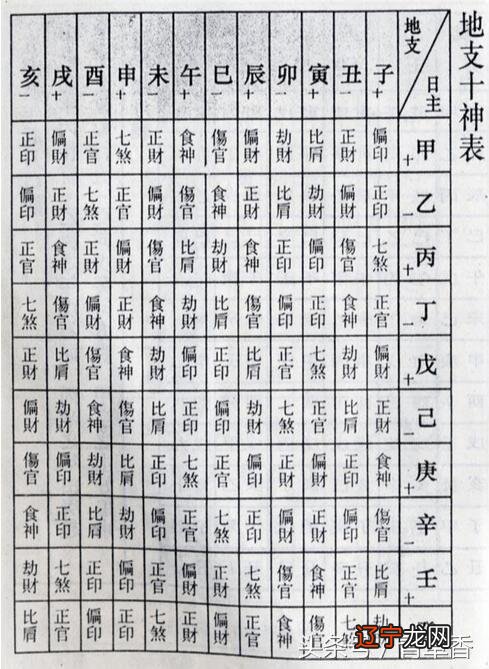 地支十神表
地支 日主 子+ 丑- 寅+ 卯- 辰+ 巳- 午+ 未- 申+ 酉- 戌+ 亥-
甲+ 偏印 正財 比肩 劫財 偏財 傷官 食神 正財 七煞 正官 偏財 正印
乙- 正印 偏財 劫財 比肩 正財 食神 傷官 偏財 正官 七煞 正財 偏印
丙+ 七煞 傷官 偏印 正印 食神 劫財 比肩 傷官 偏財 正財 食神 正官
丁- 正官 食神 正印 偏印 傷官 比肩 劫財 食神 正財 偏財 傷官 七煞
戊+ 偏財 劫財 七煞 正官 比肩 正印 偏印 劫財 食神 傷官 比肩 正財
己- 正財 比肩 正官 七煞 劫財 偏印 正印 比肩 傷官 食神 劫財 偏財
庚+ 食神 正印 偏財 正財 偏印 正官 七煞 正印 比肩 劫財 偏印 傷官
辛- 傷官 偏印 正財 偏財 正印 七煞 正官 偏印 劫財 比肩 正印 食神
壬+ 比肩 正官 食神 傷官 七煞 正財 偏財 正官 偏印 正印 七煞 劫財
傷官 食神 正官 偏財 正財 七煞 正印 偏印 正官 比肩
辽宁龙网